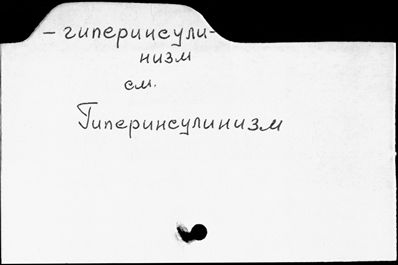 – гиперинсули-
низм
см.
Гиперинсулинизм